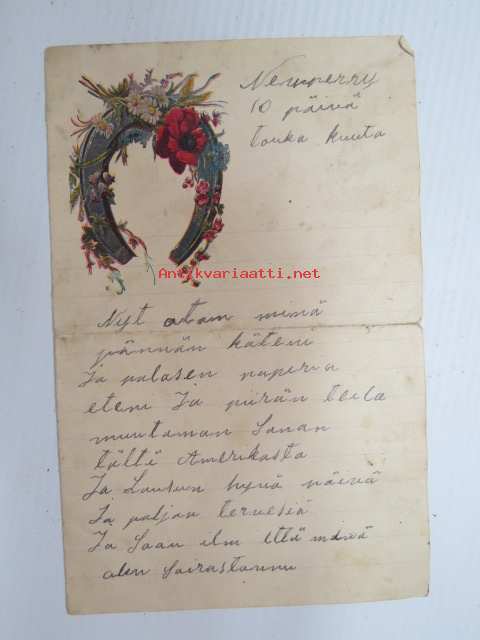 Newperry
10 päivä
touka kuuta
Antikvariaatti.net
Nyt otan minä
pännän käteni
Ja palasen paperia
eteni Ja piirän teile
muutaman Sanan
tältä Amerikasta
Ja Lausun hyvä päivä
Ja paljon terveisiä
Ja Saan ilm että minä
olen Sairastannu